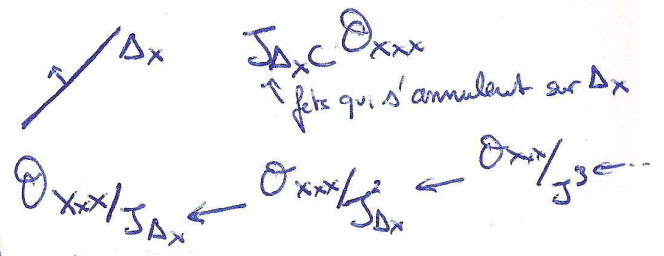 Δ_X J_{Δ_X} ⊂ O_{X×X}
↑ fcts qui s'annulent sur Δ_X
O_{X×X}/J_{Δ_X} ← O_{X×X}/J²_{Δ_X} ← O_{X×X}/J³ ← ...